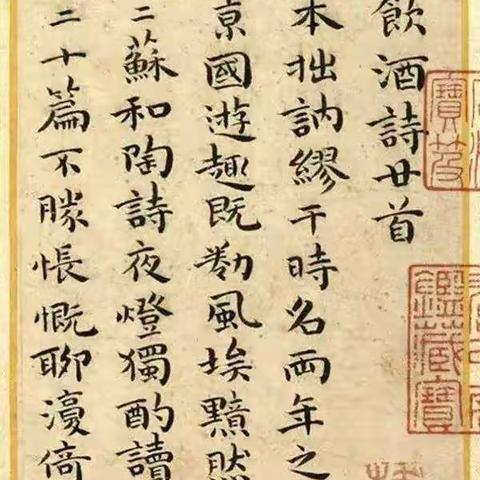 飲酒詩廿首
本拙訥繆干時名兩年之
京國遊趣既勌風埃黯然
二蘇和陶詩夜燈獨酌讀
二十篇不勝悵慨聊倚
寶笈
鑑藏寶